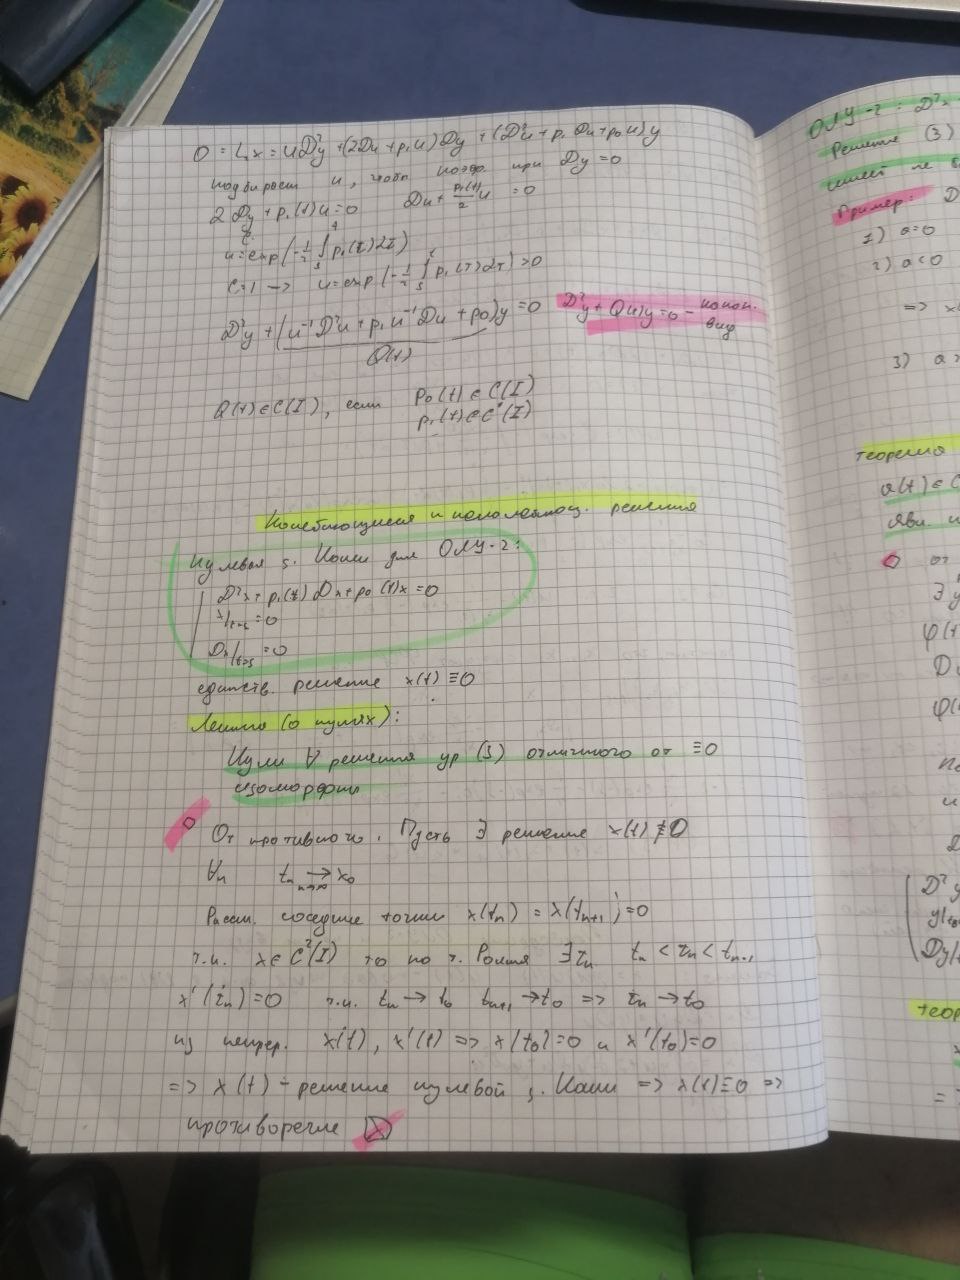 0 = L₂x = uD²y + (2Du + p₁u)Dy + (D²u + p₁Du + p₀u)y
подбираем u, чтоб коэф. при Dy = 0
2Dy + p₁(t)u = 0 Du + p₁(t)/2 u = 0
u = exp(-1/2 ∫ₛᵗ p₁(τ)dτ)
C=1 → u = exp(-1/2 ∫ₛᵗ p₁(τ)dτ) > 0
D²y + (u⁻¹D²u + p₁u⁻¹Du + p₀)y = 0 D²y + Q(t)y = 0 - канон. вид
Q(t)
Q(t) ∈ C(I), если p₀(t) ∈ C(I)
p₁(t) ∈ C¹(I)
Колеблющиеся и неколеблющ. решения
Нулевая з. Коши для ОЛУ-2:
D²x + p₁(t)Dx + p₀(t)x = 0
x|t=s = 0
Dx|t=s = 0
единств. решение x(t) ≡ 0
Лемма (о нулях):
Нули ∀ решения ур (3) отличного от ≡ 0
От противного. Пусть ∃ решение x(t) ≢ 0
∀n tₙ → x₀
n→∞
Рассм. соседние точки x(tₙ) = x(tₙ₊₁) = 0
т.к. x ∈ C²(I) то по т. Ролля ∃τₙ tₙ < τₙ < tₙ₊₁
x'(τₙ) = 0 т.к. tₙ → t₀ tₙ₊₁ → t₀ => τₙ → t₀
из непрер. x(t), x'(t) => x(t₀) = 0 и x'(t₀) = 0
=> x(t) - решение нулевой з. Коши => x(t) ≡ 0 =>
противоречие
ОЛУ-2: D²x
Решение (3)
имеет не
Пример: D
1) a=0
2) a<0
=> x
3) a>
теорема
a(t) ∈ C
явл.
от
∃ y
φ(t
D
φ(
D
D² y
y|t₀
Dy|t
теор
=